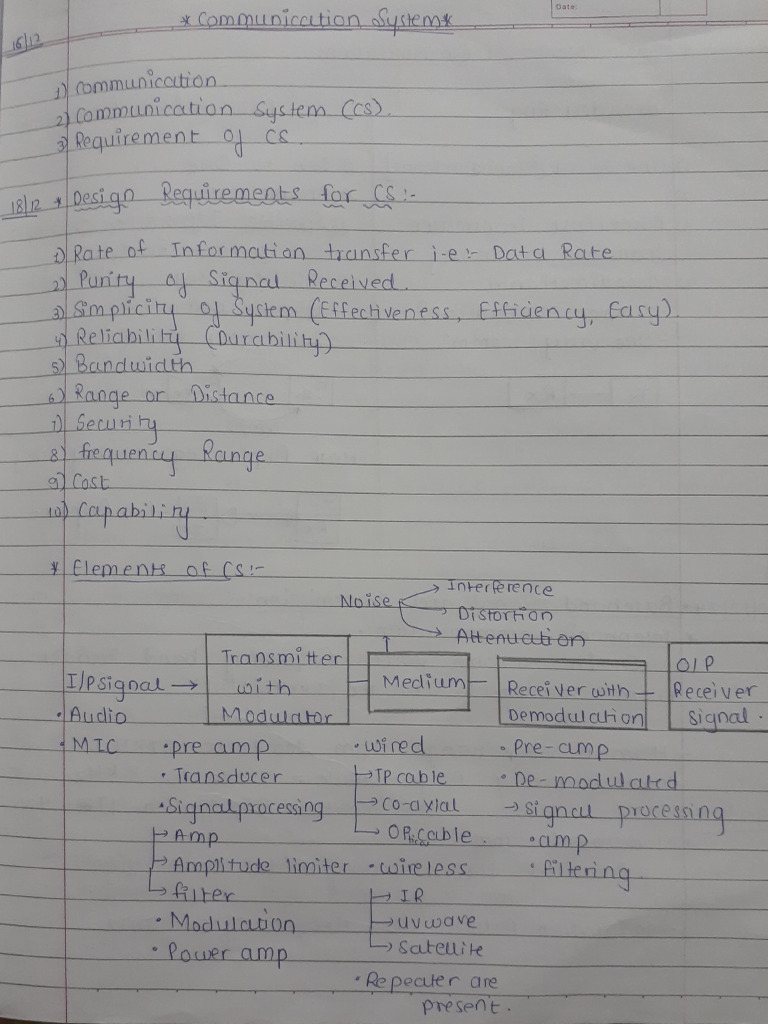 Date:
* Communication System *
16/12
1) Communication
2) Communication System (CS).
3) Requirement of CS.
18/12 * Design Requirements for CS:-
1) Rate of Information transfer i.e:- Data Rate
2) Purity of Signal Received.
3) Simplicity of System (Effectiveness, Efficiency, Easy)
4) Reliability (Durability)
5) Bandwidth
6) Range or Distance
7) Security
8) frequency Range
9) Cost
10) Capability.
* Elements of CS:-
Noise
Interference
Distortion
Attenuation
I/P signal →
• Audio
• MIC
Transmitter
with
Modulator
• pre amp
• Transducer
• Signal processing
→ Amp
→ Amplitude limiter
→ filter
• Modulation
• Power amp
Medium
• wired
→ TP cable
→ co-axial
cable.
• wireless
→ IR
→ uvwave
→ Satellite
• Repeater are
present.
Receiver with
Demodulation
• Pre-amp
• De-modulated
→ signal processing
• amp
• filtering
O/P
Receiver
signal.